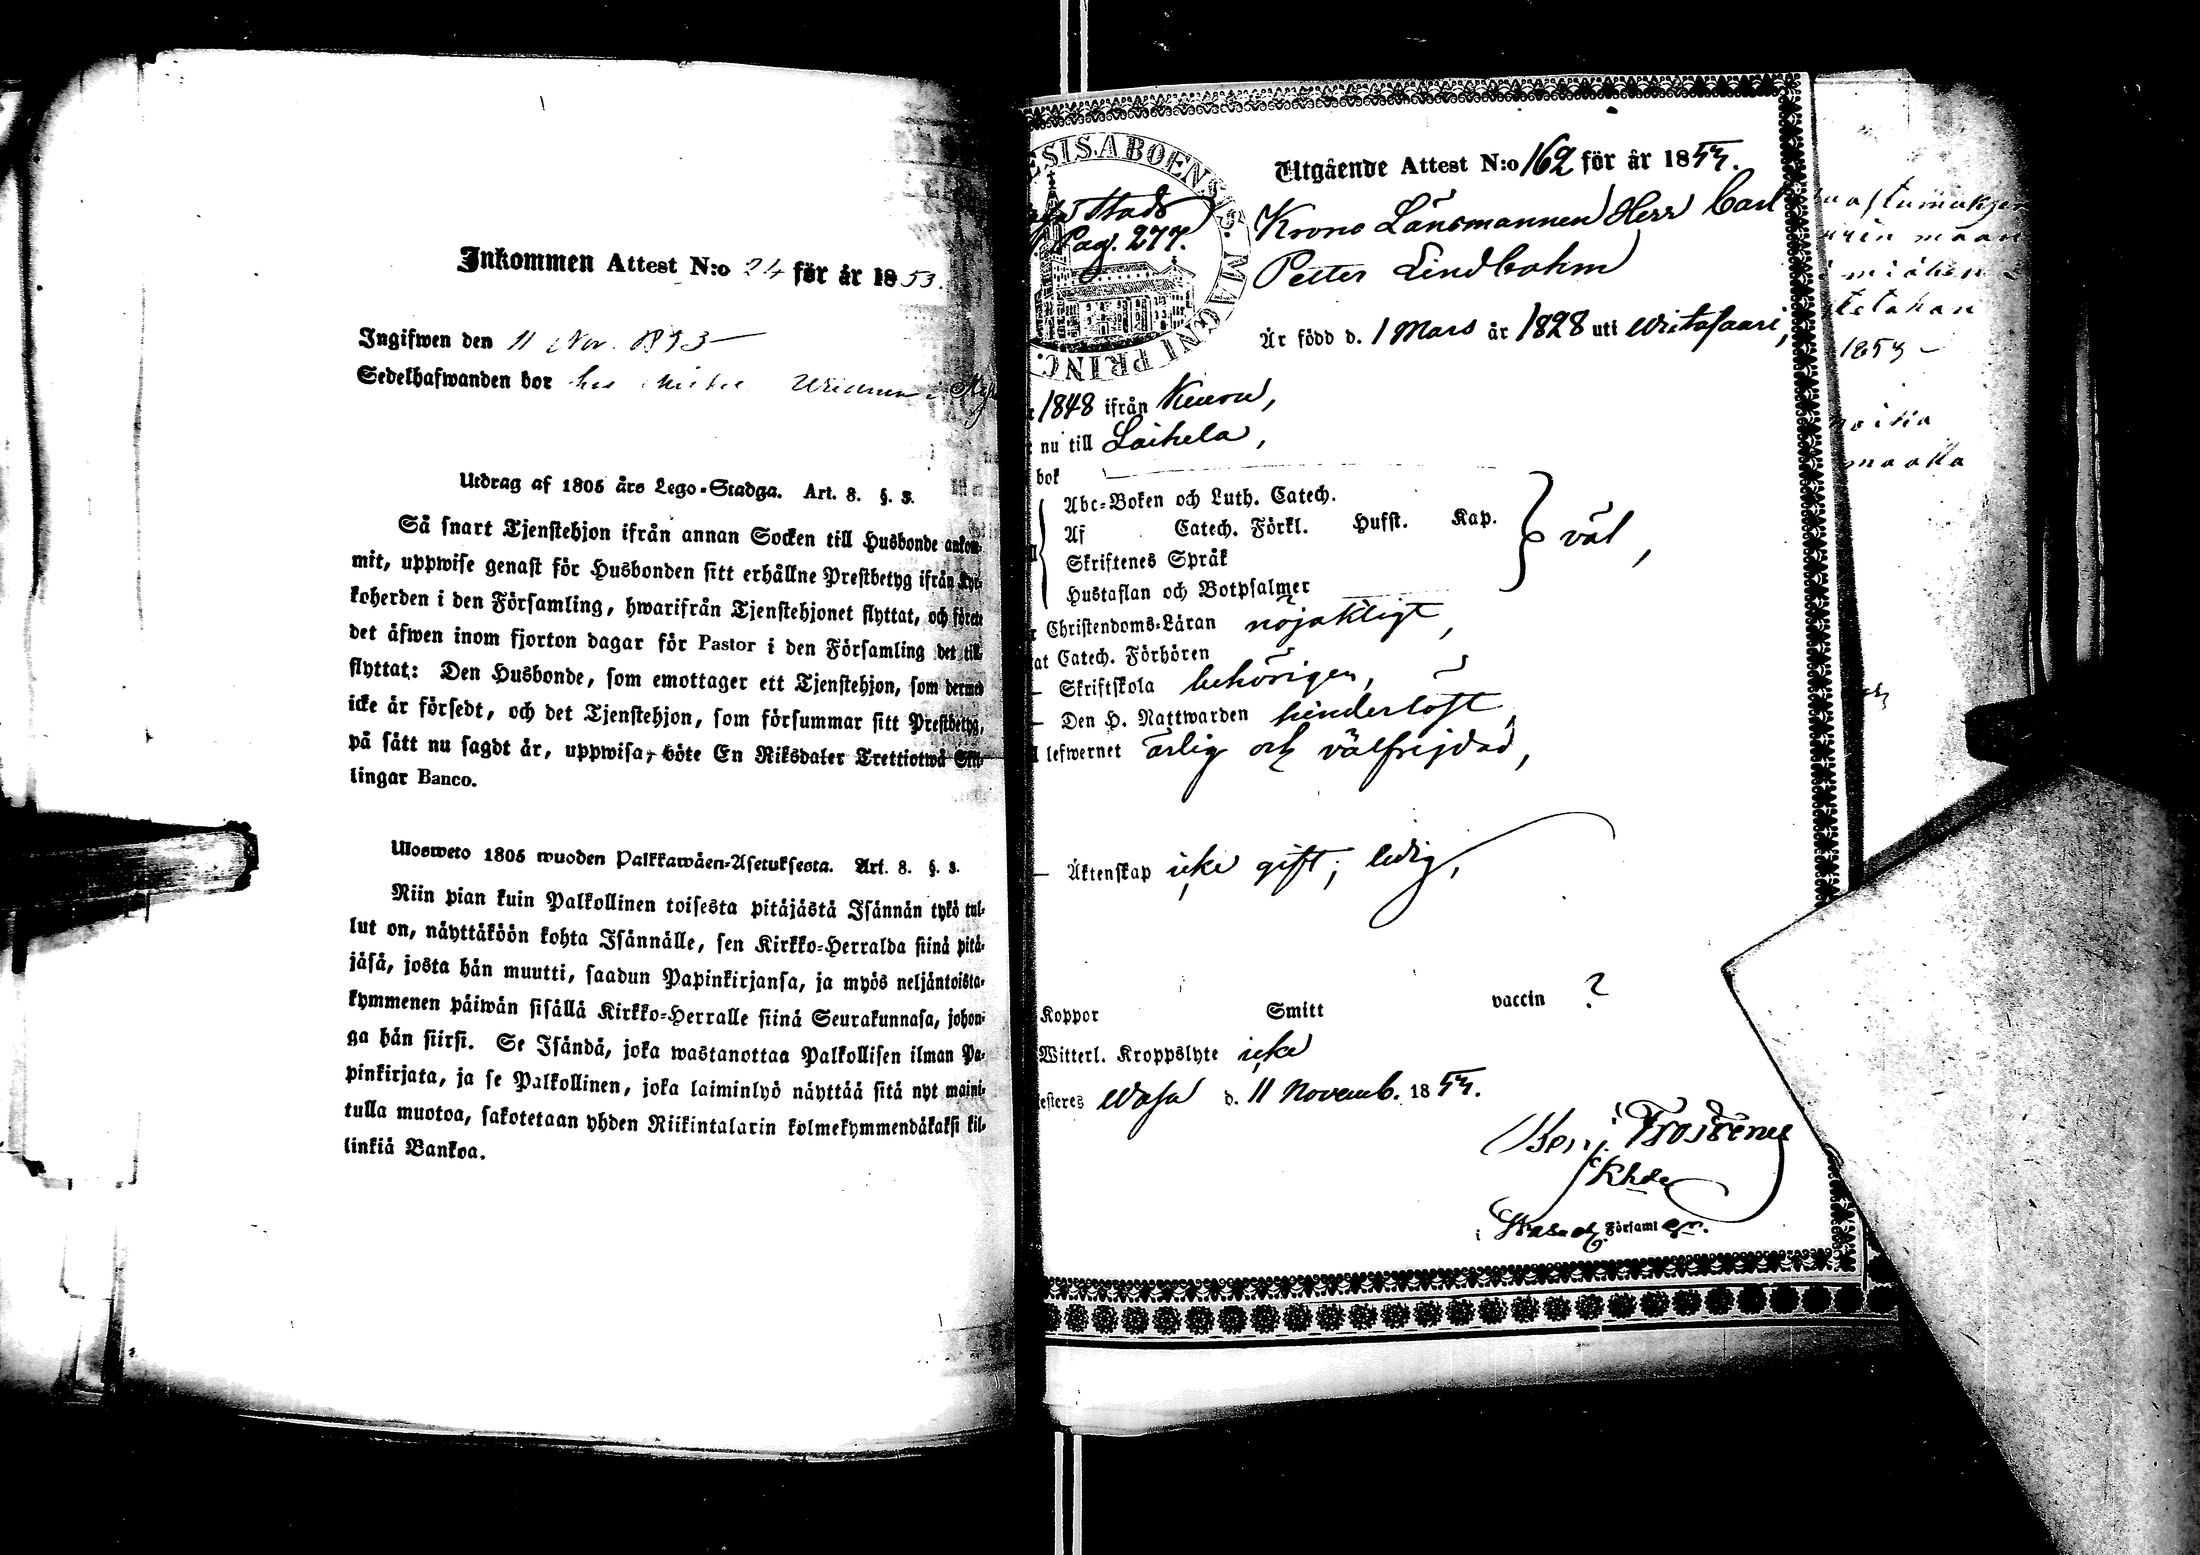 Inkommen Attest N:o 24 för år 1853.
Ingifwen den 11 Nov. 1853
Sedelhafwanden bor hos
Utdrag af 1805 års Lego-Stadga. Art. 8. §. 3.
Så snart Tjenstehjon ifrån annan Socken till Husbonde ankom-
mit, uppwise genast för Husbonden sitt erhållne Prestbetyg ifrån Kyr-
koherden i den Församling, hwarifrån Tjenstehjonet flyttat, och förete
det äfwen inom fjorton dagar för Pastor i den Församling det till-
flyttat: Den Husbonde, som emottager ett Tjenstehjon, som dermed
icke är försedt, och det Tjenstehjon, som försummar sitt Prestbetyg,
på sätt nu sagdt är, uppwisa, böte En Riksdaler Trettiotwå Skil-
lingar Banco.
Ulosweto 1805 wuoden Palkkawäen-Asetuksesta. Art. 8. §. 3.
Niin pian kuin Palkollinen toisesta pitäjästä Isännän tykö tul-
lut on, näyttäköön kohta Isännälle, sen Kirkko-Herralda siinä pitä-
jäsä, josta hän muutti, saadun Papinkirjansa, ja myös neljäntoista-
kymmenen päiwän sisällä Kirkko-Herralle siinä Seurakunnasa, johon-
ga hän siirsi. Se Isändä, joka wastanottaa Palkollisen ilman Pa-
pinkirjata, ja se Palkollinen, joka laiminlyö näyttää sitä nyt maini-
tulla muotoa, sakotetaan yhden Riikintalarin kolmekymmendäkaksi kil-
linkiä Bankoa.
ESIS. ABOENSIS. MAGNI PRINC.
Stads
Pag. 277.
Utgående Attest N:o 162 för år 1853.
Krono Länsmannen Herr Carl
Petter Lindbohm
Är född d. 1 Mars år 1828 uti Wiitasaari,
1848 ifrån Kuoru,
nu till Laihela,
bok
Abc-Boken och Luth. Catech.
Af Catech. Förkl. Husst. Kap.
Skriftenes Språk
Hustaflan och Botpsalmer
väl,
Christendoms-Läran nöjaktigt,
at Catech. Förhören
— Skriftskola behörigen,
— Den H. Nattwarden hinderlöst,
lefwernet ärlig och välfrejdad,
— Äktenskap icke gift; ledig,
Koppor Smitt vaccin ?
Witterl. Kroppslyte icke
esteres Wasa d. 11 Novemb. 1853.
Benj. Frosterus
Khde
i Wasa etc. Församl en.
1853